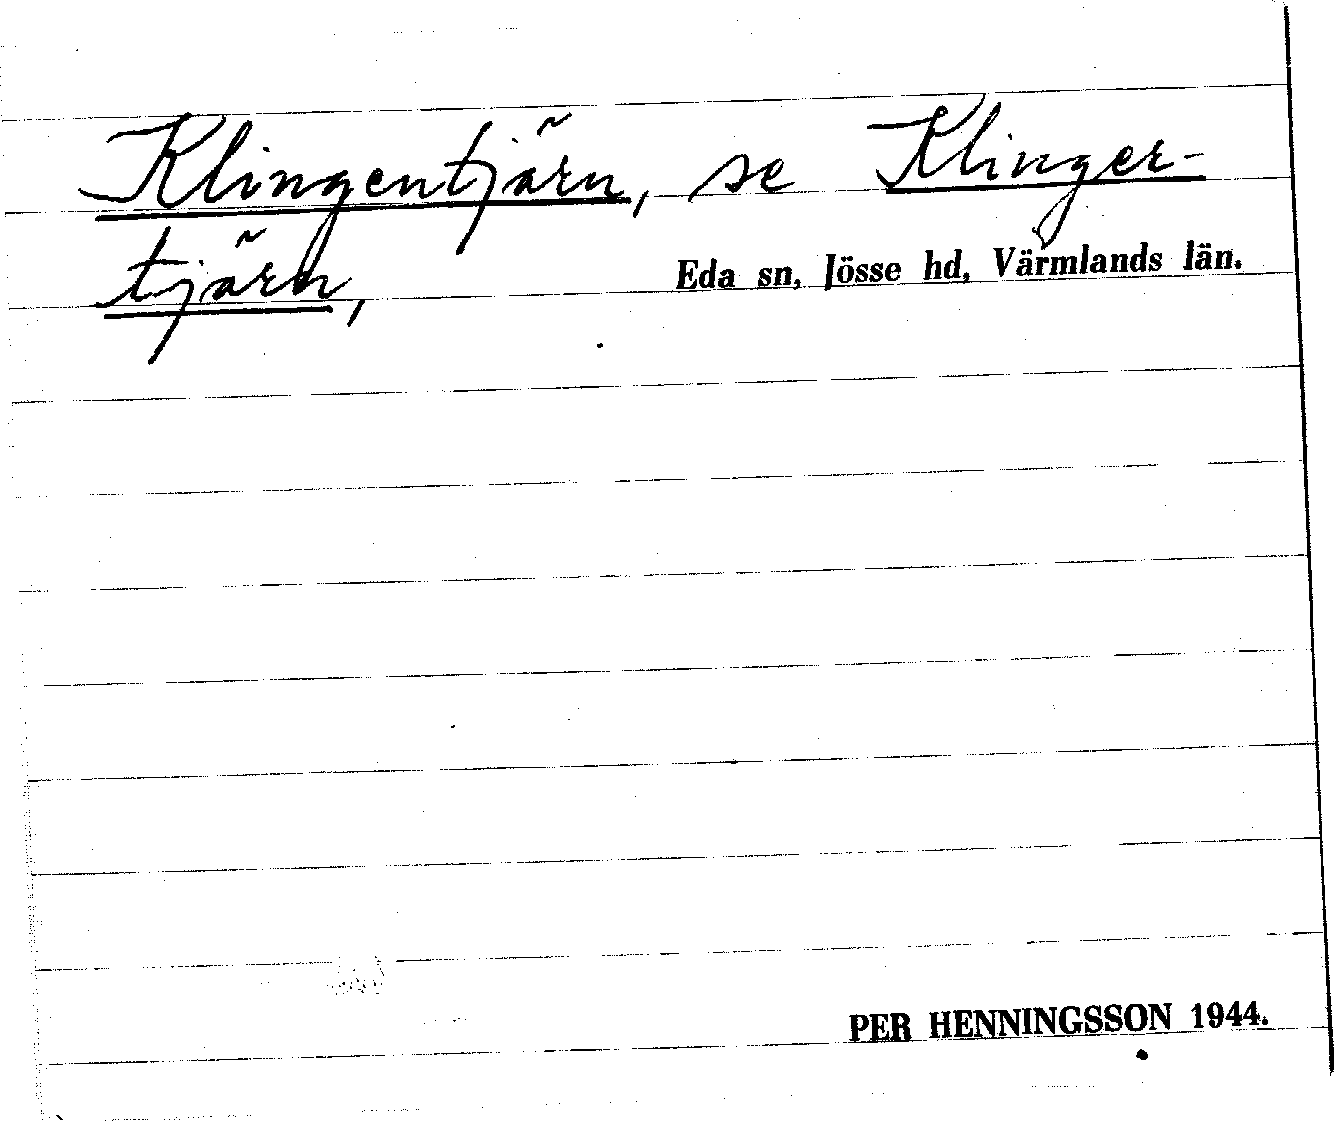 Klingentjärn, se Klinger-
tjärn,
Eda sn, Jösse hd, Värmlands län.
PER HENNINGSSON 1944.